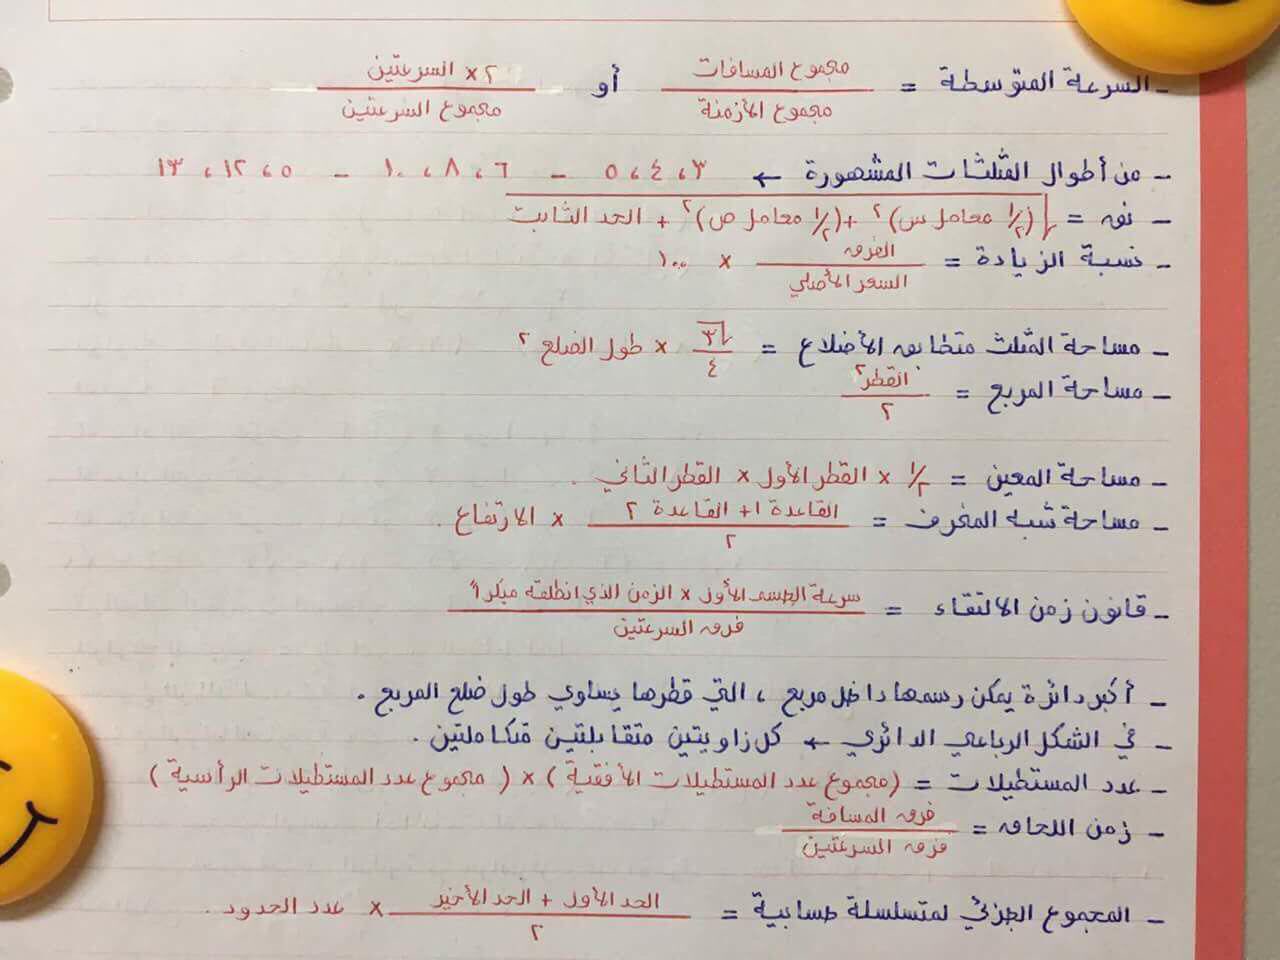 - السرعة المتوسطة = مجموع المسافات / مجموع الأزمنة أو ٢ × السرعتين / مجموع السرعتين
- من أطوال المثلثات المشهورة ← ٣ ، ٤ ، ٥ - ٦ ، ٨ ، ١٠ - ٥ ، ١٢ ، ١٣
- نق = √(١/٢ معامل س)٢ + (١/٢ معامل ص)٢ + الحد الثابت
- نسبة الزيادة = الفرق / السعر الأصلي × ١٠٠
- مساحة المثلث متطابق الأضلاع = √٣ / ٤ × طول الضلع ٢
- مساحة المربع = القطر٢ / ٢
- مساحة المعين = ١/٢ × القطر الأول × القطر الثاني .
- مساحة شبه المنحرف = القاعدة ١ + القاعدة ٢ / ٢ × الارتفاع .
- قانون زمن الالتقاء = سرعة الجسم الأول × الزمن الذي انطلقه مبكراً / فرق السرعتين
- أكبر دائرة يمكن رسمها داخل مربع ، التي قطرها يساوي طول ضلع المربع .
- في الشكل الرباعي الدائري ← كل زاويتين متقابلتين متكاملتين .
- عدد المستطيلات = (مجموع عدد المستطيلات الأفقية) × (مجموع عدد المستطيلات الرأسية)
- زمن اللحاق = فرق المسافة / فرق السرعتين
- المجموع الجزئي لمتسلسلة حسابية = الحد الأول + الحد الأخير / ٢ × عدد الحدود .